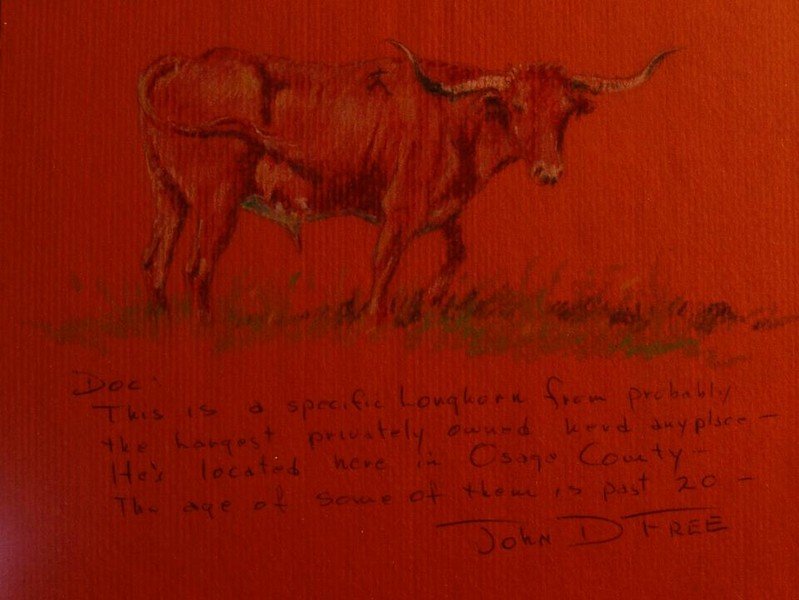 Doc:
This is a specific Longhorn from probably
the largest privately owned herd anyplace —
He's located here in Osage County —
The age of some of them is past 20 —
John D Free